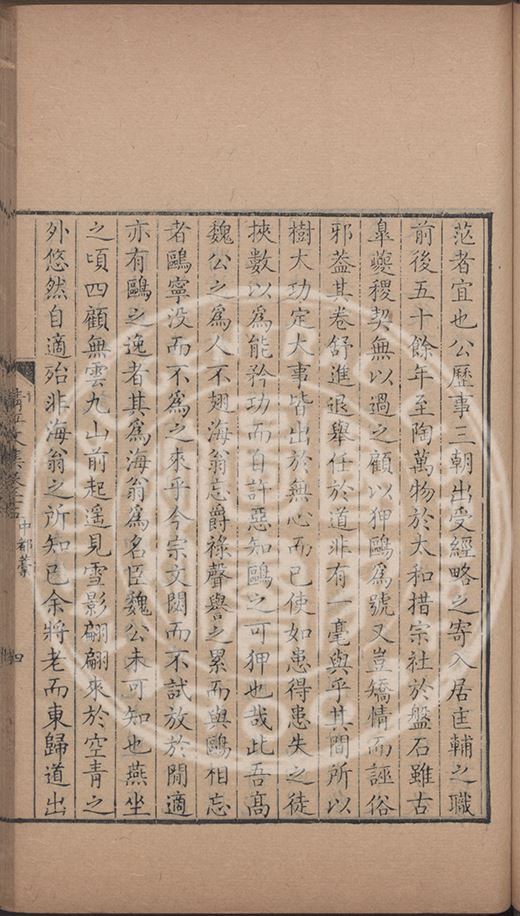 范者宜也公歷事三朝出受經略之寄入居匡輔之職
前後五十餘年至陶萬物於太和措宗社於盤石雖古
臯夔稷契無以過之顧以狎鷗爲號又豈矯情而誣俗
邪葢其卷舒進退舉任於道非有一毫與乎其間所以
樹大功定大事皆出於無心而已使如患得患失之徒
挾數以爲能矜功而自許惡知鷗之可狎也哉此吾髙
魏公之爲人不翅海翁忘爵祿聲譽之累而與鷗相忘
者鷗寧没而不爲之來乎今宗文閟而不試放於閒適
亦有鷗之逸者其爲海翁爲名臣魏公未可知也燕坐
之頃四顧無雲九山前起遥見雪影翩翩來於空青之
外悠然自適殆非海翁之所知已余將老而東歸道出
中都藳
四